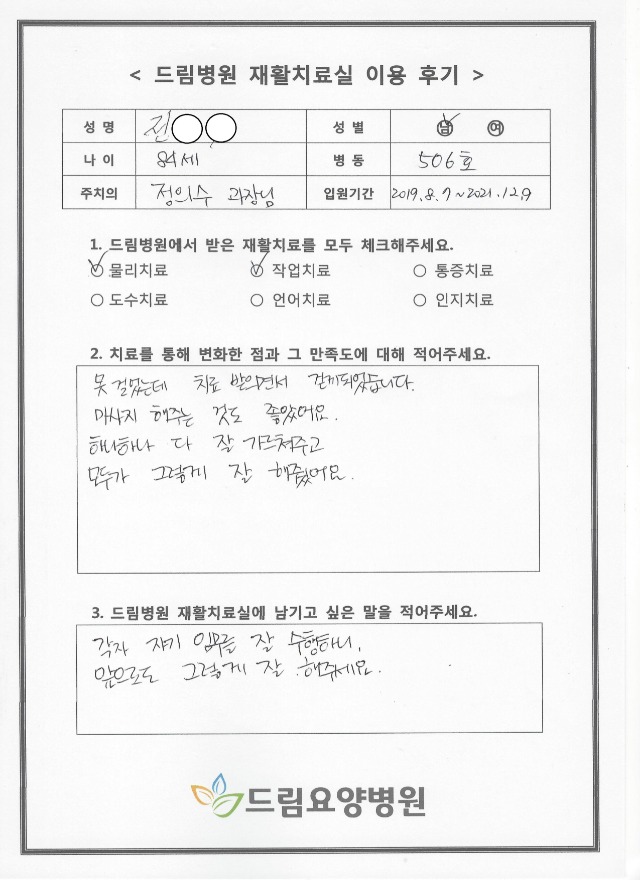 < 드림병원 재활치료실 이용 후기 >
성 명 전○○ 성 별 남 여
나 이 84세 병 동 506호
주치의 정의수 과장님 입원기간 2019.8.7~2021.12.9
1. 드림병원에서 받은 재활치료를 모두 체크해주세요.
○ 물리치료 ○ 작업치료 ○ 통증치료
○ 도수치료 ○ 언어치료 ○ 인지치료
2. 치료를 통해 변화한 점과 그 만족도에 대해 적어주세요.
못 걸었는데 치료 받으면서 걷게되었습니다.
마사지 해주는 것도 좋았어요.
하나하나 다 잘 가르쳐주고
모두가 그렇게 잘 해줬어요.
3. 드림병원 재활치료실에 남기고 싶은 말을 적어주세요.
각자 자기 임무를 잘 수행하니,
앞으로도 그렇게 잘 해주세요.
드림요양병원